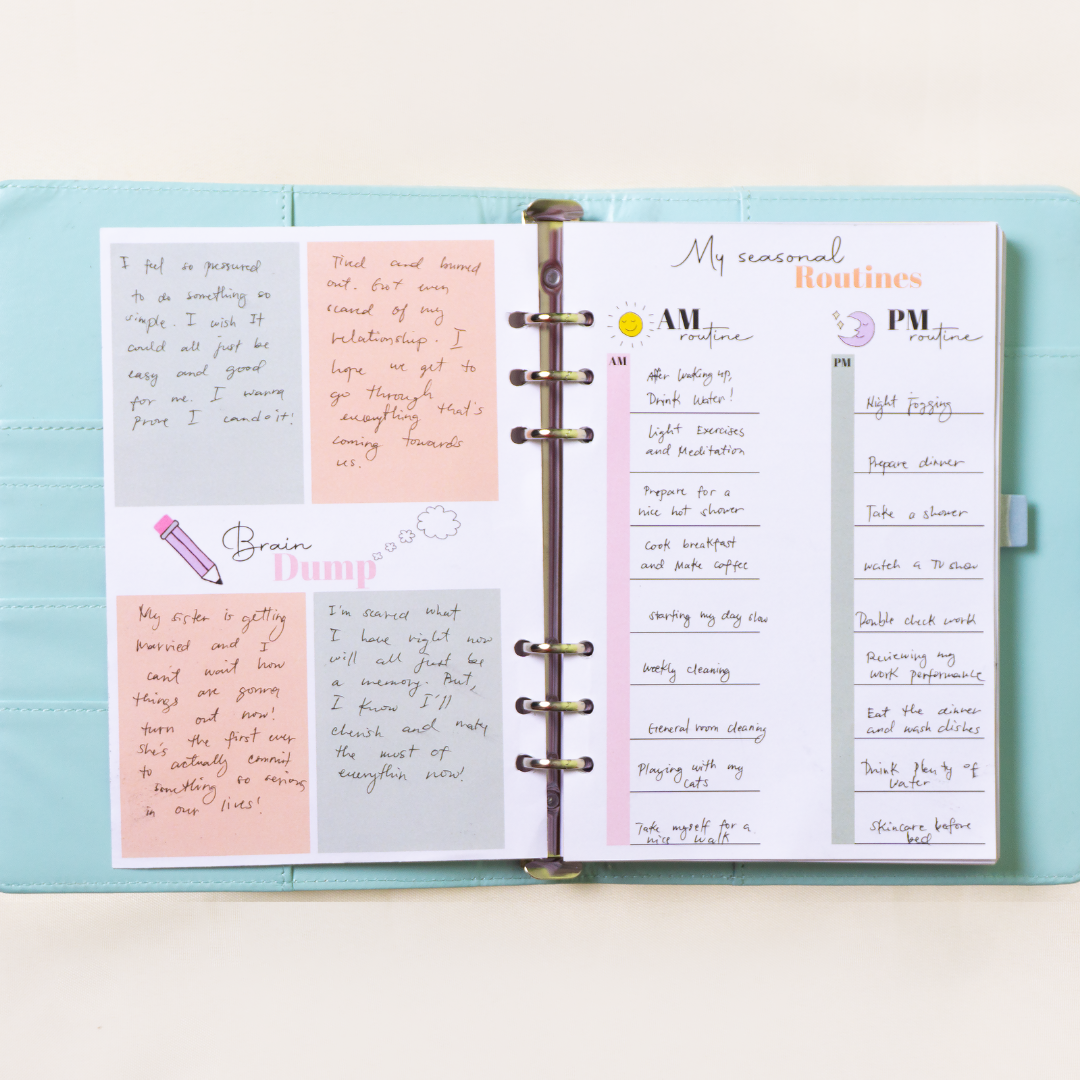 I feel so pressured
to do something so
simple. I wish It
could all just be
easy and good
for me. I wanna
prove I can do it!
Tired and burned
out. Got even
scared of my
relationship. I
hope we get to
go through
everything that's
coming towards
us.
Brain
Dump
My sister is getting
married and I
can't wait how
things are gonna
turn out now!
She's the first ever
to actually commit
to something so serious
in our lives!
I'm scared what
I have right now
will all just be
a memory. But,
I know I'll
cherish and make
the most of
everythin now!
My seasonal
Routines
AM
routine
AM
After waking up,
Drink water!
Light Exercises
and Meditation
Prepare for a
nice hot shower
Cook breakfast
and Make coffee
starting my day slow
weekly cleaning
General room cleaning
Playing with my
cats
Take myself for a
nice walk
PM
routine
PM
Night Jogging
Prepare dinner
Take a shower
watch a TV show
Double check work
Reviewing my
work performance
Eat the dinner
and wash dishes
Drink plenty of
water
Skincare before
bed